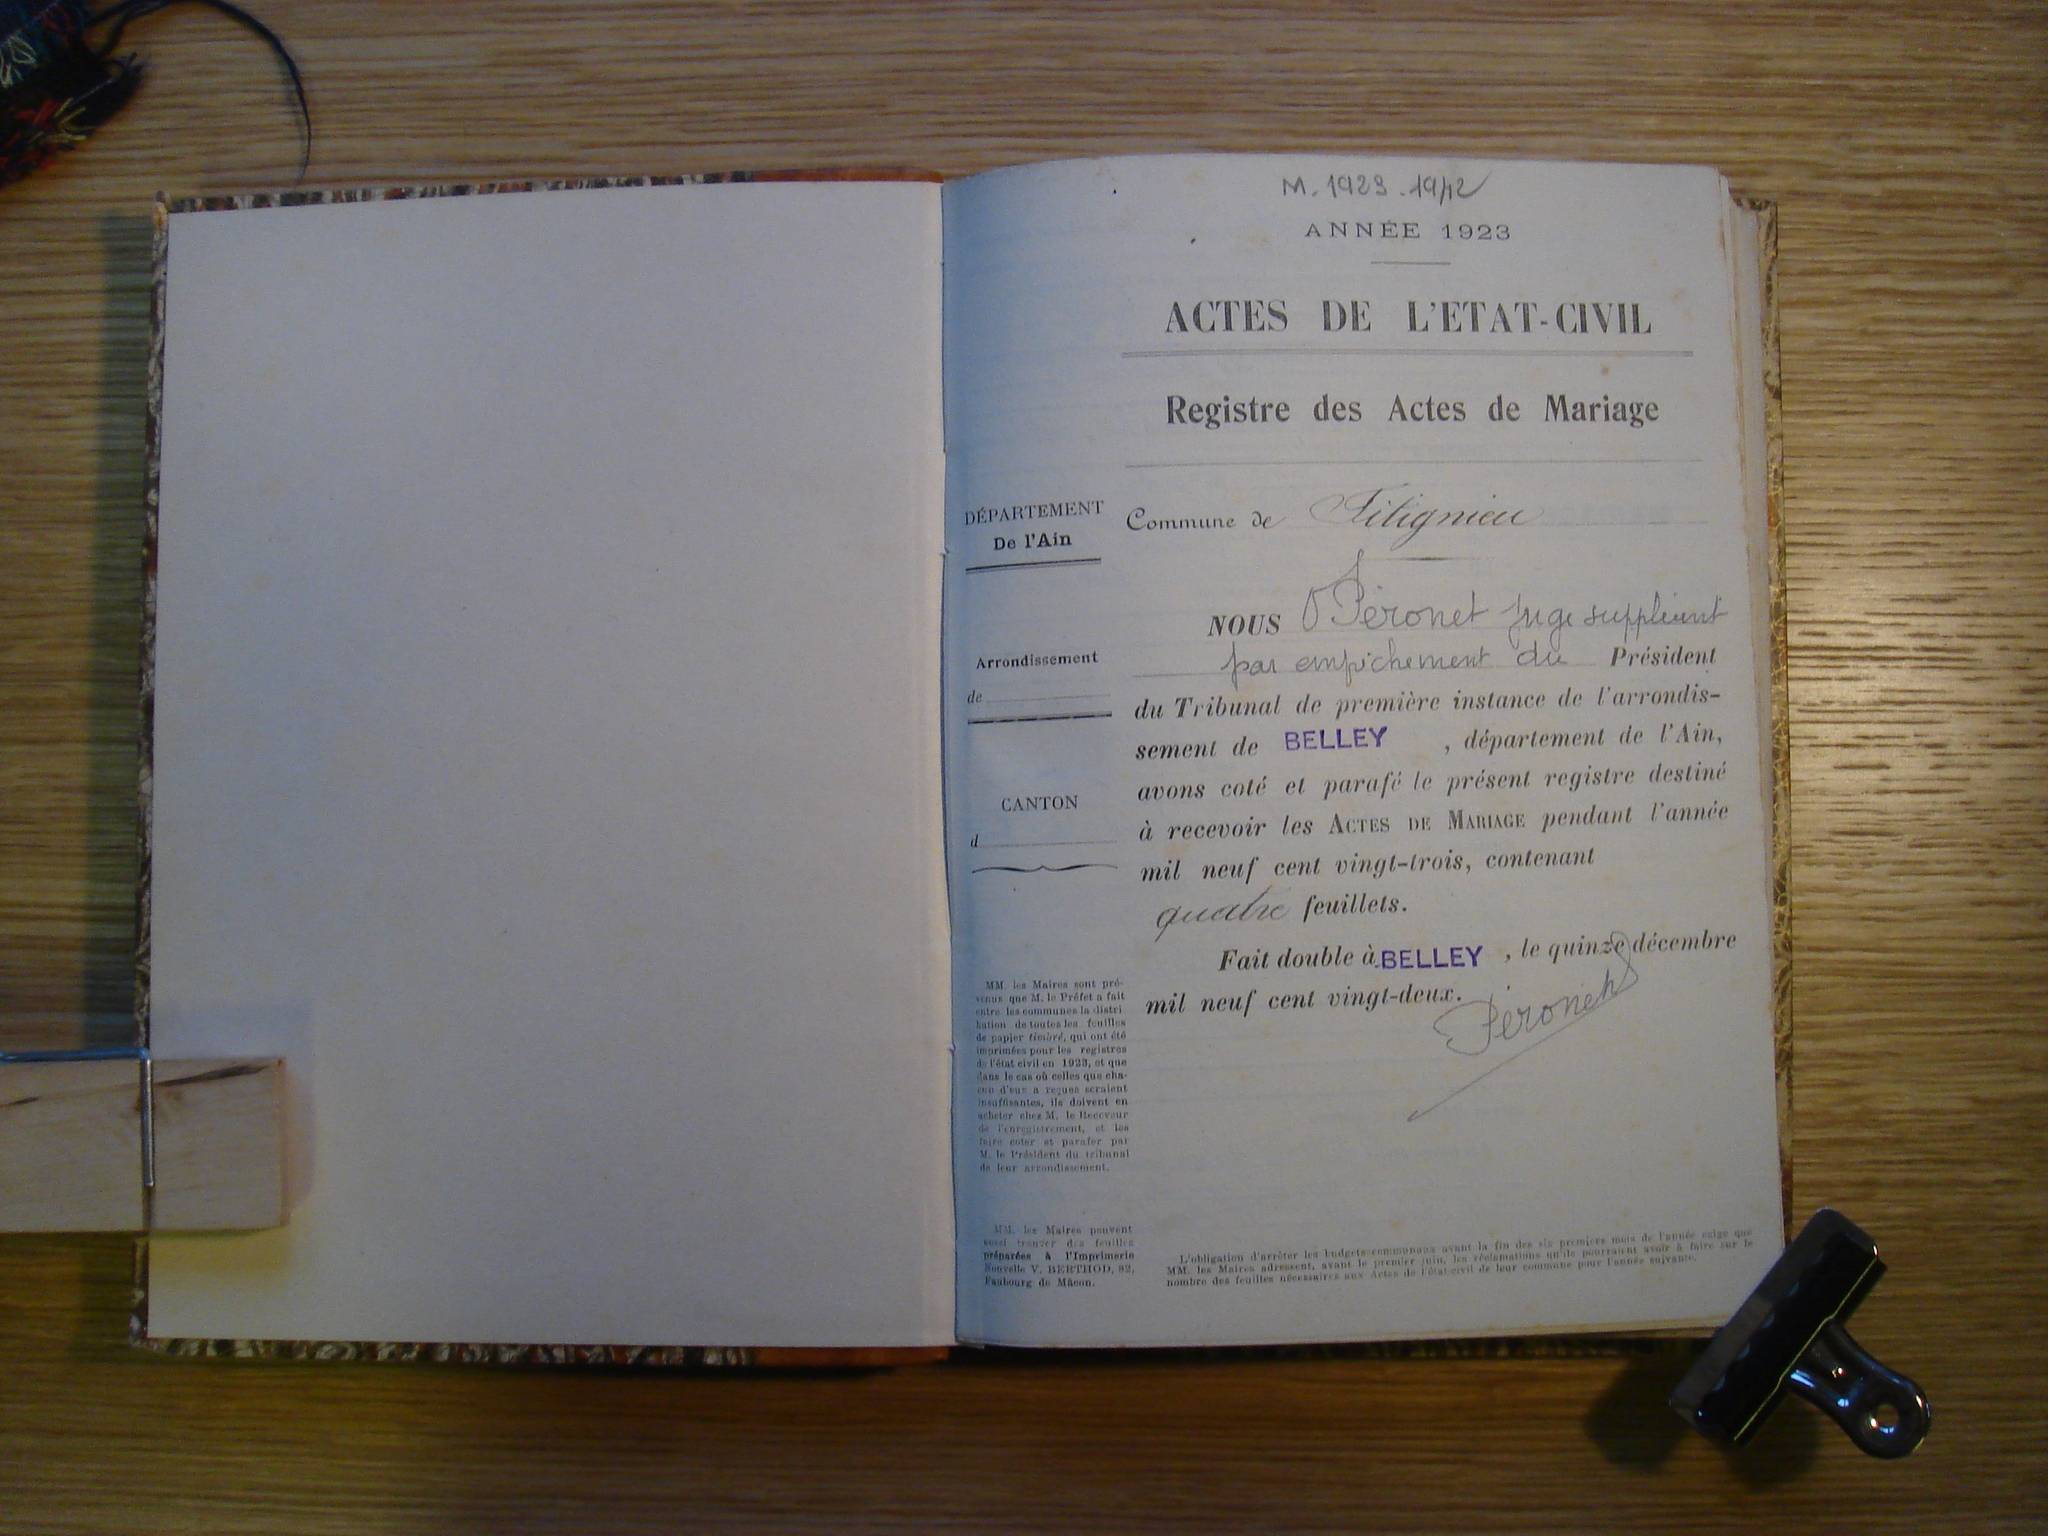 M. 1923 - 1942
ANNÉE 1923
ACTES DE L'ETAT-CIVIL
Registre des Actes de Mariage
DÉPARTEMENT
De l'Ain
Arrondissement
de
CANTON
d
MM. les Maires sont pré-
venus que M. le Préfet a fait
entre les communes la distri
bution de toutes les feuilles
de papier timbré, qui ont été
imprimées pour les registres
de l'état civil en 1923, et que
dans le cas où celles que cha-
cun d'eux a reçues seraient
insuffisantes, ils doivent en
acheter chez M. le Receveur
de l'enregistrement, et les
faire coter et parafer par
M. le Président du tribunal
de leur arrondissement.
MM. les Maires peuvent
aussi trouver des feuilles
préparées à l'Imprimerie
Nouvelle V. BERTHOD, 82,
Faubourg de Mâcon.
Commune de Filignieu
NOUS Péronet Juge suppléant
par empêchement du Président
du Tribunal de première instance de l'arrondis-
sement de BELLEY , département de l'Ain,
avons coté et parafé le présent registre destiné
à recevoir les ACTES DE MARIAGE pendant l'année
mil neuf cent vingt-trois, contenant
quatre feuillets.
Fait double à BELLEY , le quinze décembre
mil neuf cent vingt-deux.
Péronet
L'obligation d'arrêter les budgets communaux avant la fin des six premiers mois de l'année exige que
MM. les Maires adressent, avant le premier juin, les réclamations qu'ils pourraient avoir à faire sur le
nombre des feuilles nécessaires aux Actes de l'état-civil de leur commune pour l'année suivante.